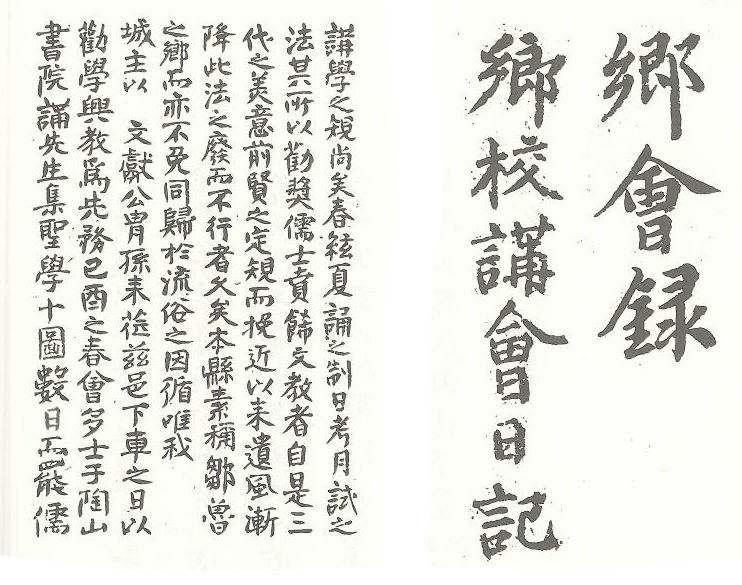 鄕會録
鄕校講會日記
講學之規尚矣春絃夏誦之制日考月試之
法其所以勸奬儒士賁餙文教者自是三
代之美意前賢之定規而挽近以来遺風漸
降此法之廢而不行者久矣本縣素稱鄒魯
之鄕而亦不免同歸於流俗之因循唯我
城主以 文獻公胄孫来莅兹邑下車之日以
勸學興教爲先務己酉之春會多士于陶山
書院講先生集聖學十圖數日而罷儒